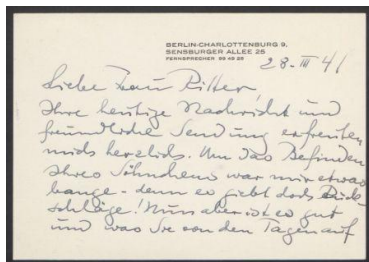 BERLIN-CHARLOTTENBURG 9,
SENSBURGER ALLEE 25
FERNSPRECHER 99 45 25
28. III 41
Liebe Frau Ritter
Ihre heutige Nachricht und
freundliche Sendung erfreuten
mich herzlich. Um das Befinden
Ihres Söhnchens war mir etwas
bange - denn es giebt doch Rück-
schläge! Nun aber ist es gut
und was Sie von den Tagen auf